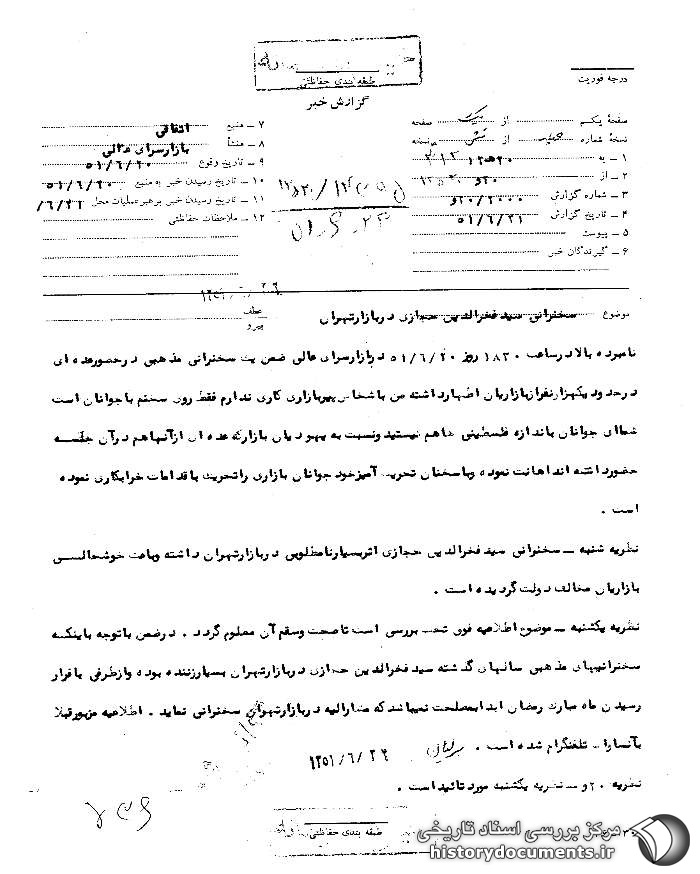 طبقه بندی حفاظتی
گزارش خبر
درجه فوریت
صفحه یکم از یک صفحه
نسخه شماره از نسخه
۱ ــ به ۳۱۲
۲ ــ از ۲۰و
۳ ــ شماره گزارش ۲۰/۲۰۰۰و
۴ ــ تاریخ گزارش ۵۱/۶/۲۱
۵ ــ پیوست
۶ ــ گیرندگان خبر
۷ ــ منبع اتفاقی
۸ ــ منشأ بازارسرای عالی
۹ ــ تاریخ وقوع ۵۱/۶/۲۰
۱۰ ــ تاریخ رسیدن خبر به منبع ۵۱/۶/۲۰
۱۱ ــ تاریخ رسیدن خبر برهبرعملیات محل ۶/۲۱/
۱۲ ــ ملاحظات حفاظتی
عطف
پیرو
موضوع سخنرانی سید فخرالدین حجازی در بازار تهران
نامبرده بالا در ساعت ۱۸۳۰ روز ۵۱/۶/۲۰ در بازار سرای عالی ضمن یک سخنرانی مذهبی در حضور عده ای
در حدود یکهزار نفر از بازاریان اظهار داشته من با شخاص پیر بازاری کاری ندارم فقط روی سخنم با جوانان است
شما ای جوانان باندازه فلسطینی ها هم نیستید و نسبت به یهودیان بازار که عده ای از آنها هم در آن جلسه
حضور داشته اند اهانت نموده و با سخنان تحریک آمیز خود جوانان بازاری را تحریک با قدامات خرابکاری نموده
است .
نظریه شنبه ــ سخنرانی سید فخرالدین حجازی اثر بسیار نامطلوبی در بازار تهران داشته و باعث خوشحالسی
بازاریان مخالف دولت گردیده است .
نظریه یکشنبه ــ موضوع اطلاعیه فوق تحت بررسی است تا صحت و سقم آن معلوم گردد . در ضمن با توجه باینکه
سخنرانیهای مذهبی سالهای گذشته سید فخرالدین حجازی در بازار تهران بسیار زننده بوده و از طرفی با فرار
رسیدن ماه مبارک رمضان ابدا بمصلحت نمیباشد که مشارالیه در بازار تهران سخنرانی نماید . اطلاعیه مزبور قبلا
بآنساراــ تلفنگرام شده است .
۱۳۵۱/۶/۲۶
نظریه ۲۰و ــ نظریه یکشنبه مورد تائید است .
طبقه بندی حفاظتی
مرکز بررسی اسناد تاریخی
historydocuments.ir